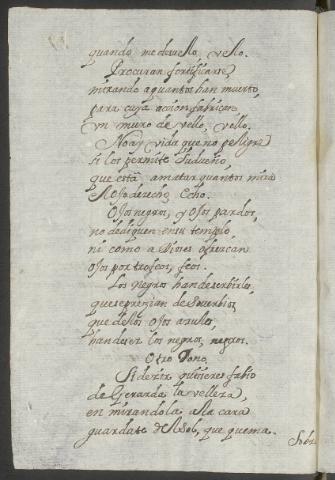 quando me desvelo, velo.
Procuran fortificarse,
mirando a quantos han muerto,
para cuya accion fabrican
un muro de vello, vello.
No ay vida que no peligre
si los permite su dueño,
que està a matar quantos mira
el ojo derecho, echo.
Ojos negros, y ojos pardos,
no dediquen en su templo
ni como a Dioses ofrezcan
ojos por trofeos, feos.
Los negros han de servirles,
que se precian de sobervios,
que de los ojos azules,
han de ser los negros, negros.
Otro Tono
Si dezir quisieres fabio
de Gerarda la velleza,
en mirandola a la cara
guardate de el Sol, que quema.
Sobr